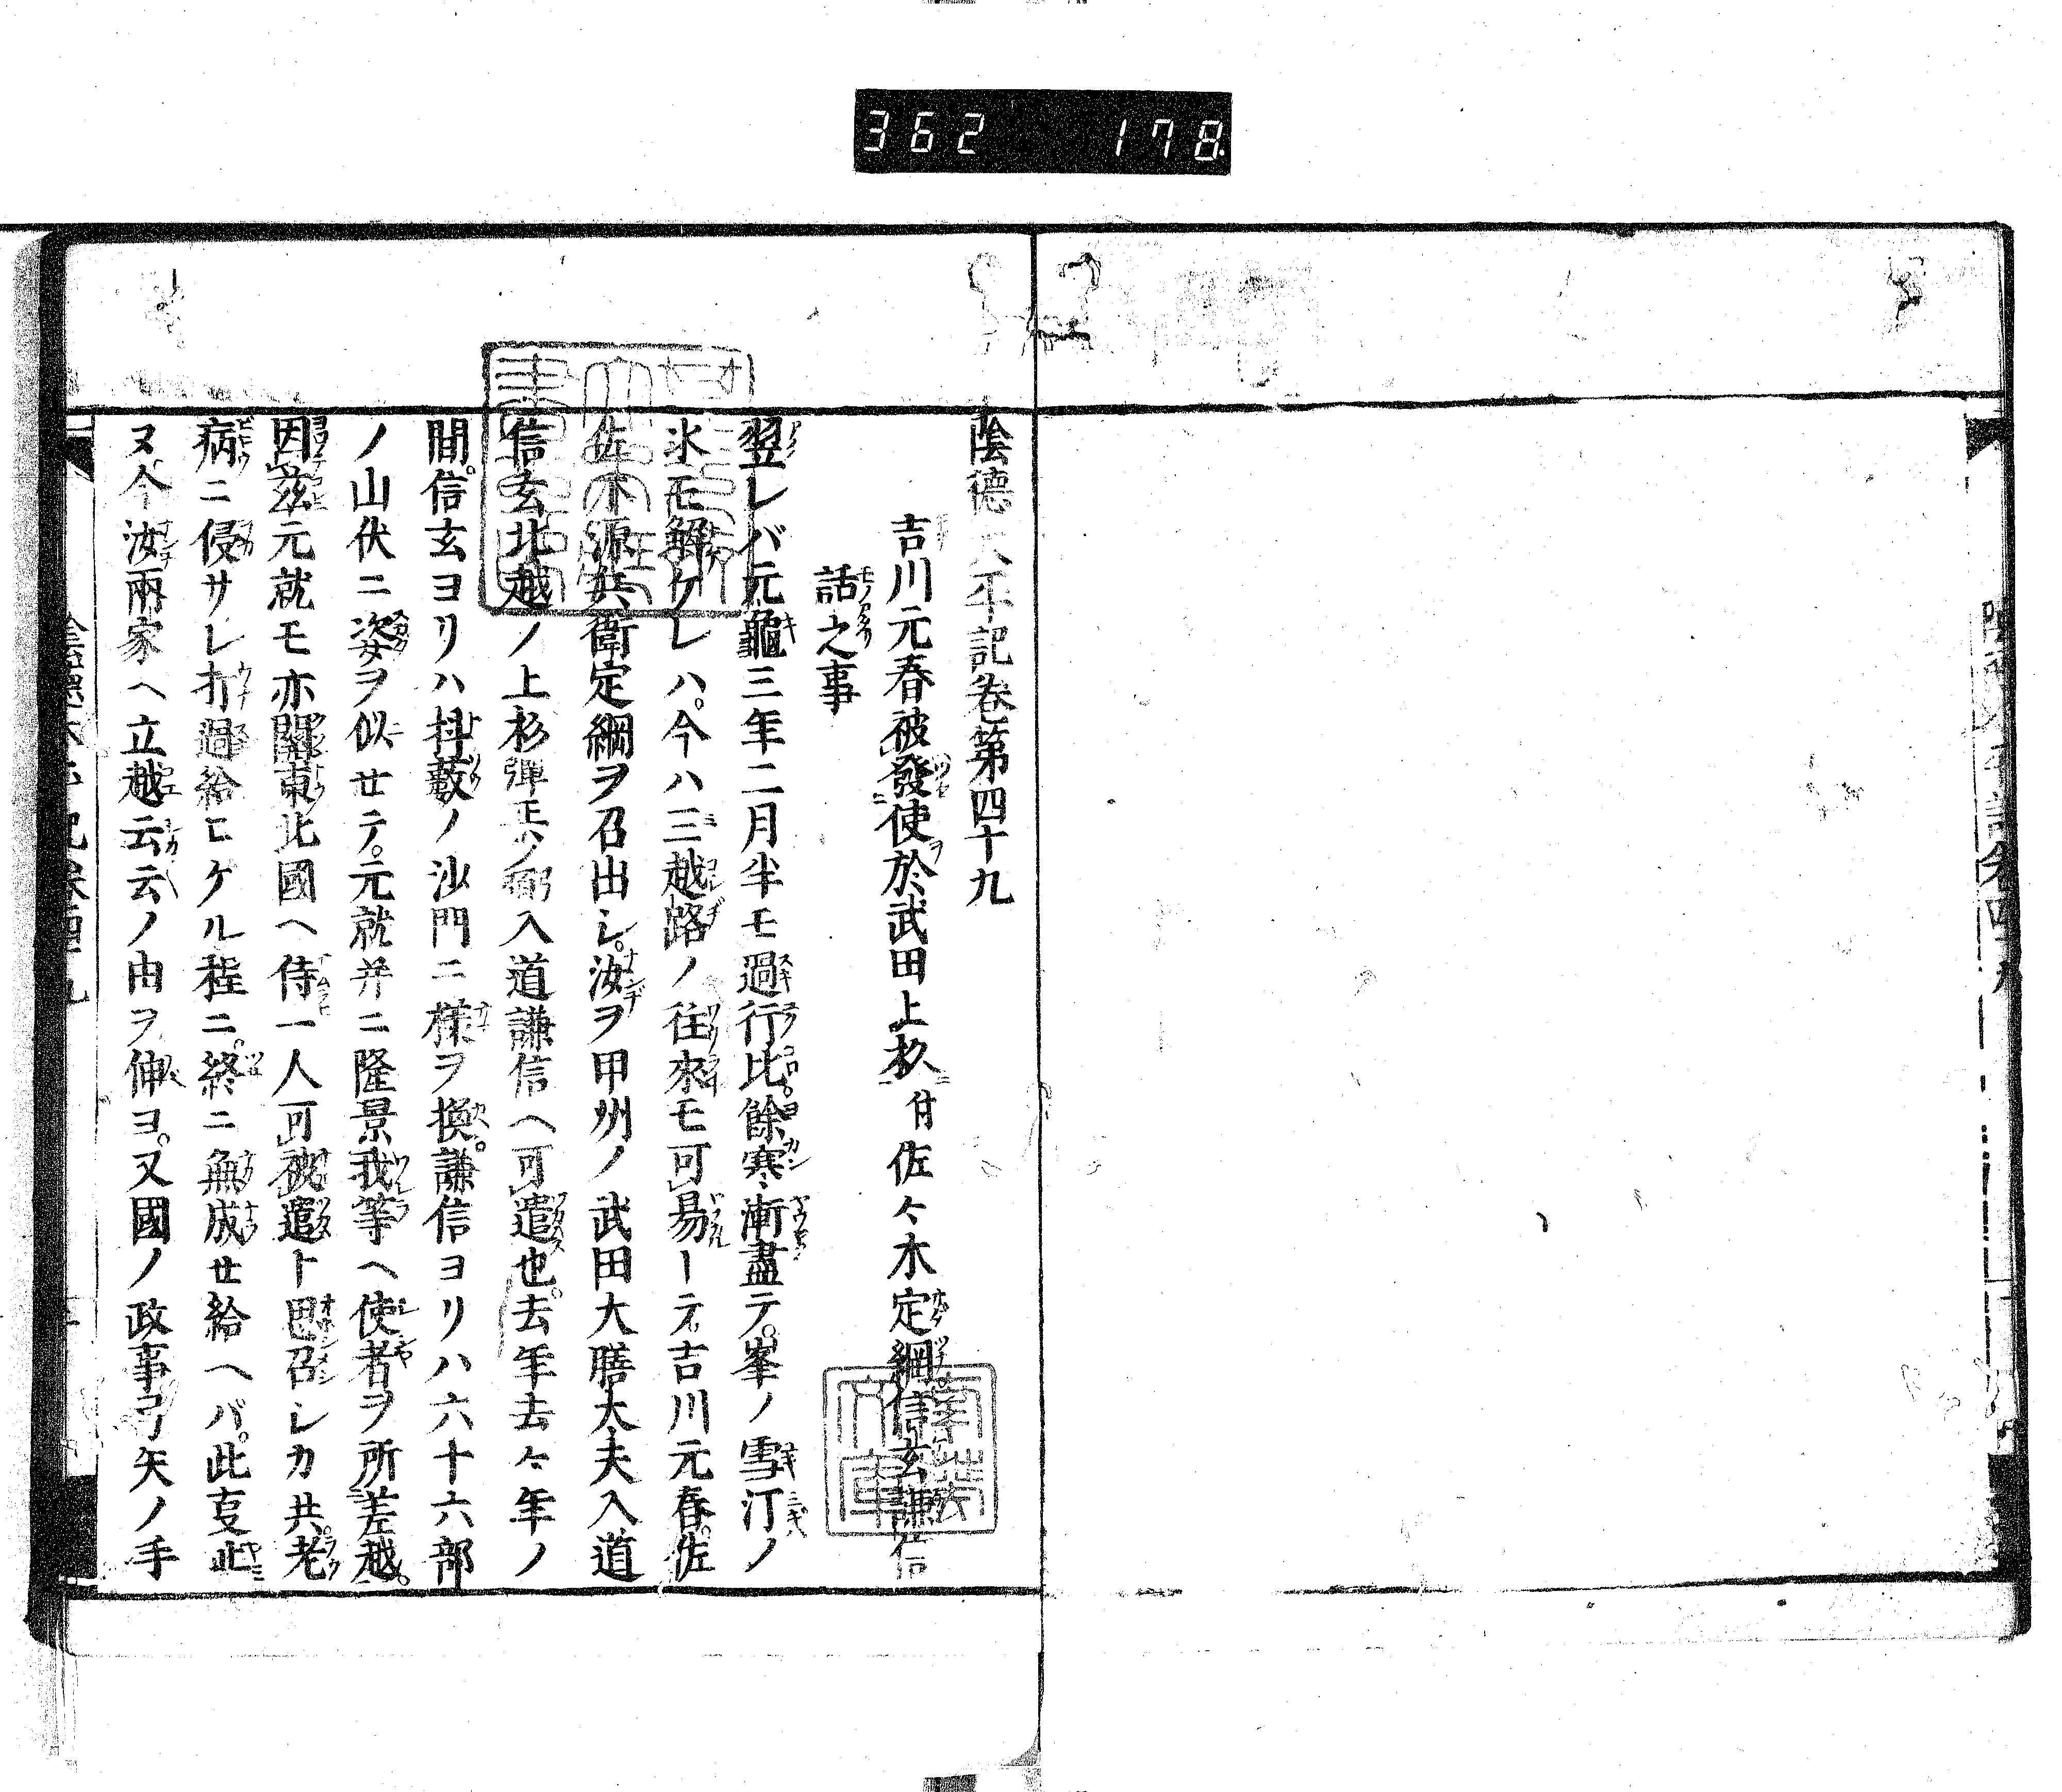 362 178
陰德太平記卷第四十九
吉川元春被發使於武田上杉 付 佐々木定綱信玄謙信
話之事
翌レバ元龜三年二月半モ過行比。餘寒漸盡テ。峯ノ雪汀ノ
氷モ解ケレハ。今ハ三越路ノ往來モ可易ーテ。吉川元春。佐
佐木源兵衛定綱ヲ召出シ。汝ヲ甲州ノ武田大膳太夫入道
信玄北越ノ上杉彈正ノ弼入道謙信ヘ可遣也。去年去々年ノ
間。信玄ヨリハ抖藪ノ沙門ニ樣ヲ換。謙信ヨリハ六十六部
ノ山伏ニ姿ヲ似せテ。元就并ニ隆景我等ヘ使者ヲ所差越。
因茲元就モ亦關東北國ヘ侍一人可被遣ト思召シカ共。老
病ニ侵サレ打過給ヒケル程ニ。終ニ無成せ給ヘバ。此叓止
ヌ。今汝兩家ヘ立越云云ノ由ヲ伸ヨ。又國ノ政事弓矢ノ手